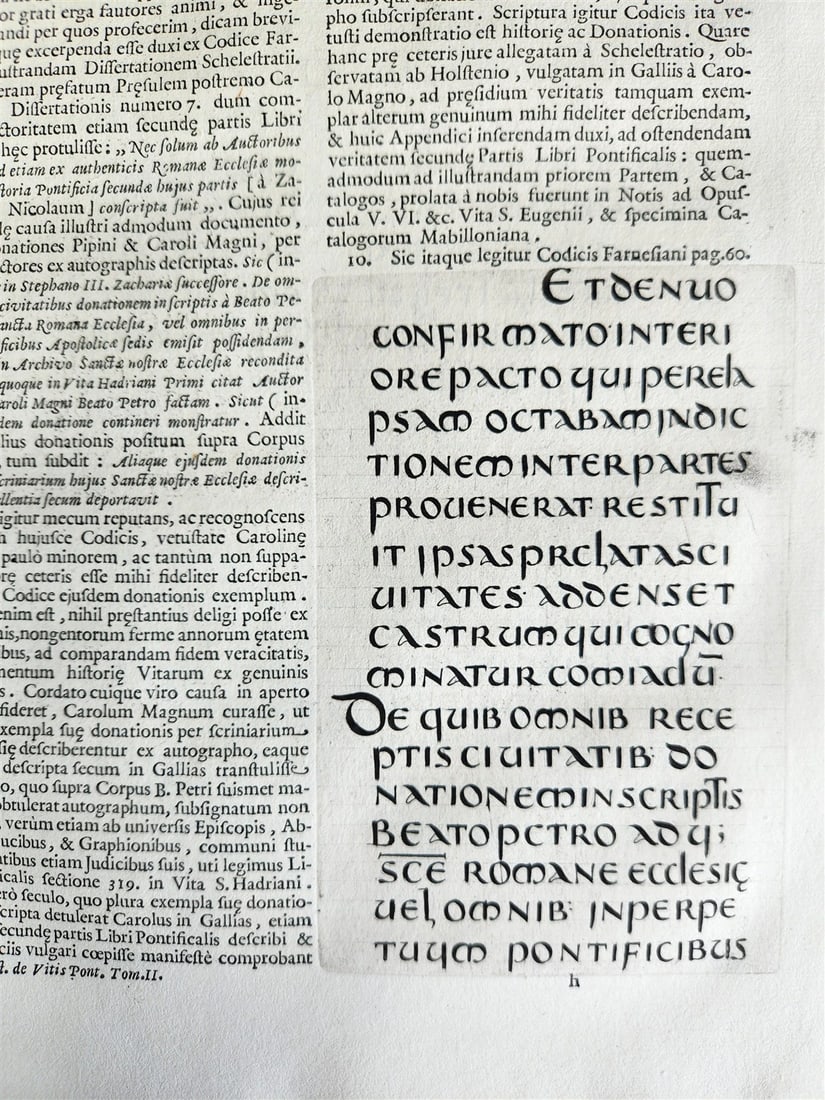 or grati erga fautores animi, & inge-
andi per quos profecerim, dicam brevi-
quę excerpenda eſſe duxi ex Codice Far-
uſtrandam Diſſertationem Scheleſtratii.
eram pręfatum Pręſulem poſtremo Ca-
Diſſertationis numero 7. dum com-
ctoritatem etiam ſecundę partis Libri
hęc protuliſſe: „ Nec ſolum ab Auctoribus
d etiam ex authenticis Romanæ Eccleſiæ mo-
ſtoria Pontificia ſecundæ hujus partis [ à Za-
Nicolaum ] conſcripta fuit „. Cujus rei
lę cauſa illuſtri admodum documento,
nationes Pipini & Caroli Magni, per
ctores ex autographis deſcriptas. Sic ( in-
in Stephano III. Zachariæ ſucceſſore. De om-
civitatibus donationem in ſcriptis à Beato Pe-
anctæ Romanæ Eccleſia, vel omnibus in per-
ficibus Apoſtolicæ ſedis emiſit poſſidendam,
n Archivo Sanctæ noſtræ Eccleſiæ recondita
quoque in Vita Hadriani Primi citat Auctor
aroli Magni Beato Petro factam. Sicut ( in-
dem donatione contineri monſtratur. Addit
lius donationis poſitum ſupra Corpus
tum ſubdit : Aliaque ejuſdem donationis
criniarium hujus Sanctæ noſtræ Eccleſiæ deſcri-
llentia ſecum deportavit.
igitur mecum reputans, ac recognoſcens
m hujuſce Codicis, vetuſtate Carolinę
paulò minorem, ac tantùm non ſuppa-
rę ceteris eſſe mihi fideliter deſcriben-
Codice ejuſdem donationis exemplum.
enim eſt, nihil pręſtantius deligi poſſe ex
nis, nongentorum ferme annorum ętatem
bus, ad comparandam fidem veracitatis,
mentum hiſtorię Vitarum ex genuinis
s. Cordato cuique viro cauſa in aperto
fideret, Carolum Magnum curaſſe, ut
xempla ſuę donationis per ſcriniarium
ſię deſcriberentur ex autographo, eaque
deſcripta ſecum in Gallias tranſtuliſſe
o, quo ſupra Corpus B. Petri ſuismet ma-
obtulerat autographum, ſubſignatum non
, verùm etiam ab univerſis Epiſcopis, Ab-
ucibus, & Graphionibus, communi ſtu-
tibus etiam Judicibus ſuis, uti legimus Li-
icalis ſectione 319. in Vita S. Hadriani.
rò ſeculo, quo plura exempla ſuę donatio-
cripta detulerat Carolus in Gallias, etiam
ecundę partis Libri Pontificalis deſcribi &
ciis vulgari cœpiſſe manifeſtè comprobant
l. de Vitis Pont. Tom. II.
pho ſubſcripſerant. Scriptura igitur Codicis ita ve-
tuſti demonſtratio eſt hiſtorię ac Donationis. Quare
hanc prę ceteris jure allegatam à Scheleſtratio, ob-
ſervatam ab Holſtenio, vulgatam in Galliis à Caro-
lo Magno, ad pręſidium veritatis tamquam exem-
plar alterum genuinum mihi fideliter deſcribendam,
& huic Appendici inſerendam duxi, ad oſtendendam
veritatem ſecundę Partis Libri Pontificalis: quem-
admodum ad illuſtrandam priorem Partem, & Ca-
talogos, prolata à nobis fuerunt in Notis ad Opuſ-
cula V. VI. &c. Vita S. Eugenii, & ſpecimina Ca-
talogorum Mabilloniana.
10. Sic itaque legitur Codicis Farneſiani pag. 60.
ET DENUO
CONFIRMATO INTERI
ORE PACTO QUI PER ELA
PSAM OCTABAM INDIC
TIONEM INTER PARTES
PROUENERAT RESTITU
IT IPSAS PRELATAS CI
UITATES ADDENS ET
CASTRUM QUI COGNO
MINATUR COMIACLŪ
DE QUIB OMNIB RECE
PTIS CIUITATIB DO
NATIONEM IN SCRIPTIS
BEATO PETRO ADQ;
SCE ROMANE ECCLESIĘ
UEL OMNIB IN PERPE
TUUM PONTIFICIBUS
h